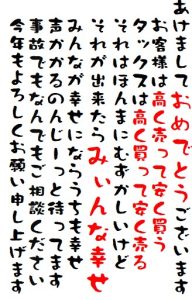 あけましておめでとうございます
お客様は高く売って安く買う
タックスは高く買って安く売る
それはほんまにむずかしいけど
それが出来たらみぃんな幸せ
みんなが幸せにならうちも幸せ
声かかるのんじーっと待ってます
事故でもなんでもご相談ください
今年もよろしくお願い申し上げます